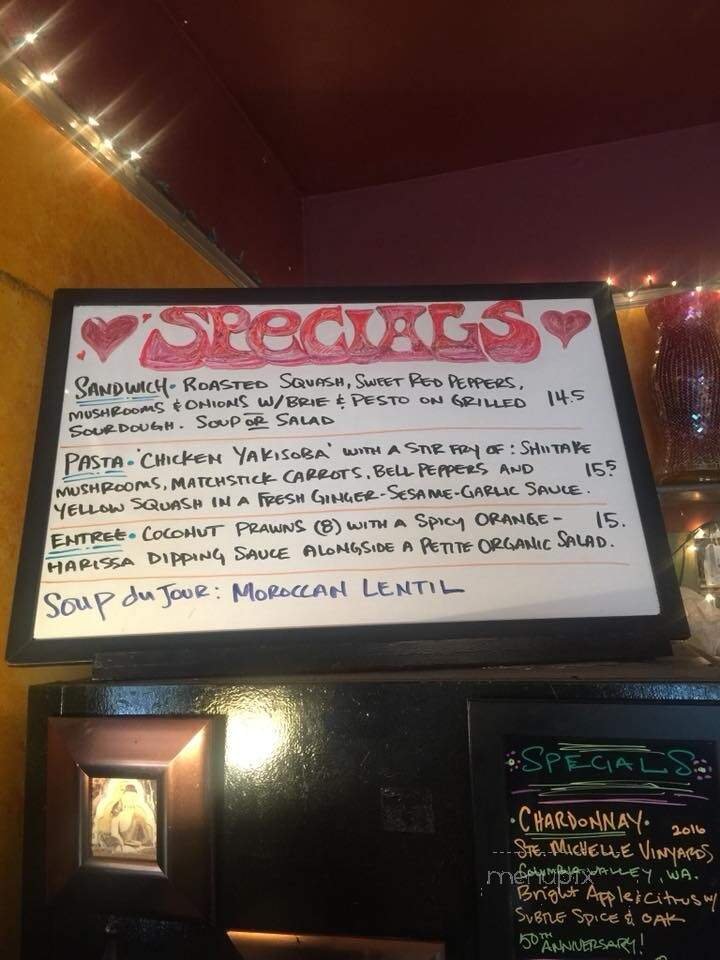 SPECIALS
SANDWICH. ROASTED SQUASH, SWEET RED PEPPERS,
MUSHROOMS & ONIONS W/BRIE & PESTO ON GRILLED 14.5
SOURDOUGH. SOUP OR SALAD
PASTA. 'CHICKEN YAKISOBA' WITH A STIR FRY OF: SHIITAKE
MUSHROOMS, MATCHSTICK CARROTS, BELL PEPPERS AND 15.5
YELLOW SQUASH IN A FRESH GINGER-SESAME-GARLIC SAUCE.
ENTREE. COCONUT PRAWNS (8) WITH A SPICY ORANGE- 15.
HARISSA DIPPING SAUCE ALONGSIDE A PETITE ORGANIC SALAD.
SOUP du JOUR: MOROCCAN LENTIL
SPECIALS
CHARDONNAY. 2016
STE. MICHELLE VINYARDS
COLUMBIA VALLEY, WA.
Bright Apple & Citrus w/
SUBTLE SPICE & OAK
50TH ANNIVERSARY!
menupix